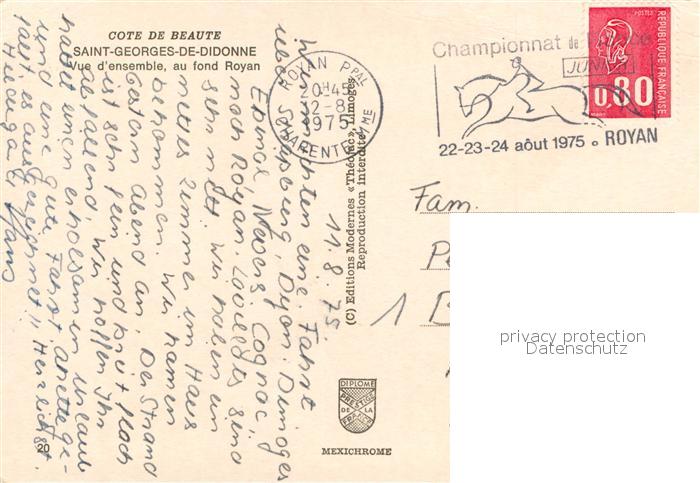 COTE DE BEAUTE
SAINT-GEORGES-DE-DIDONNE
Vue d'ensemble, au fond Royan
11.8.75.
Wir machten eine Fahrt
über Salzburg, Dijon, Limoges
Epinal, Nevers, Cognac,
noch Royan. Louillets sind
sehr nett. Wir haben ein
nettes Zimmer im Haus
bekommen. Wir kamen
Gestern Abend an. Der Strand
ist sehr fein und breit + flach
abfallend. Wir hoffen Ihr
habet einen erholsamen Urlaub
und eine gute Fahrt
Herzlichst
Hans
20
(C) Editions Modernes «Théojac», Limoges
Reproduction interdite
DIPLOME
PRESTIGE
DE LA
FRANCE
MEXICHROME
ROYAN PPAL
20H45
12-8
1975
CHARENTE MME
Championnat de
JUNIOR
22-23-24 aôut 1975 o ROYAN
POSTES
REPUBLIQUE FRANÇAISE
0,80
Fam.
1
privacy protection
Datenschutz